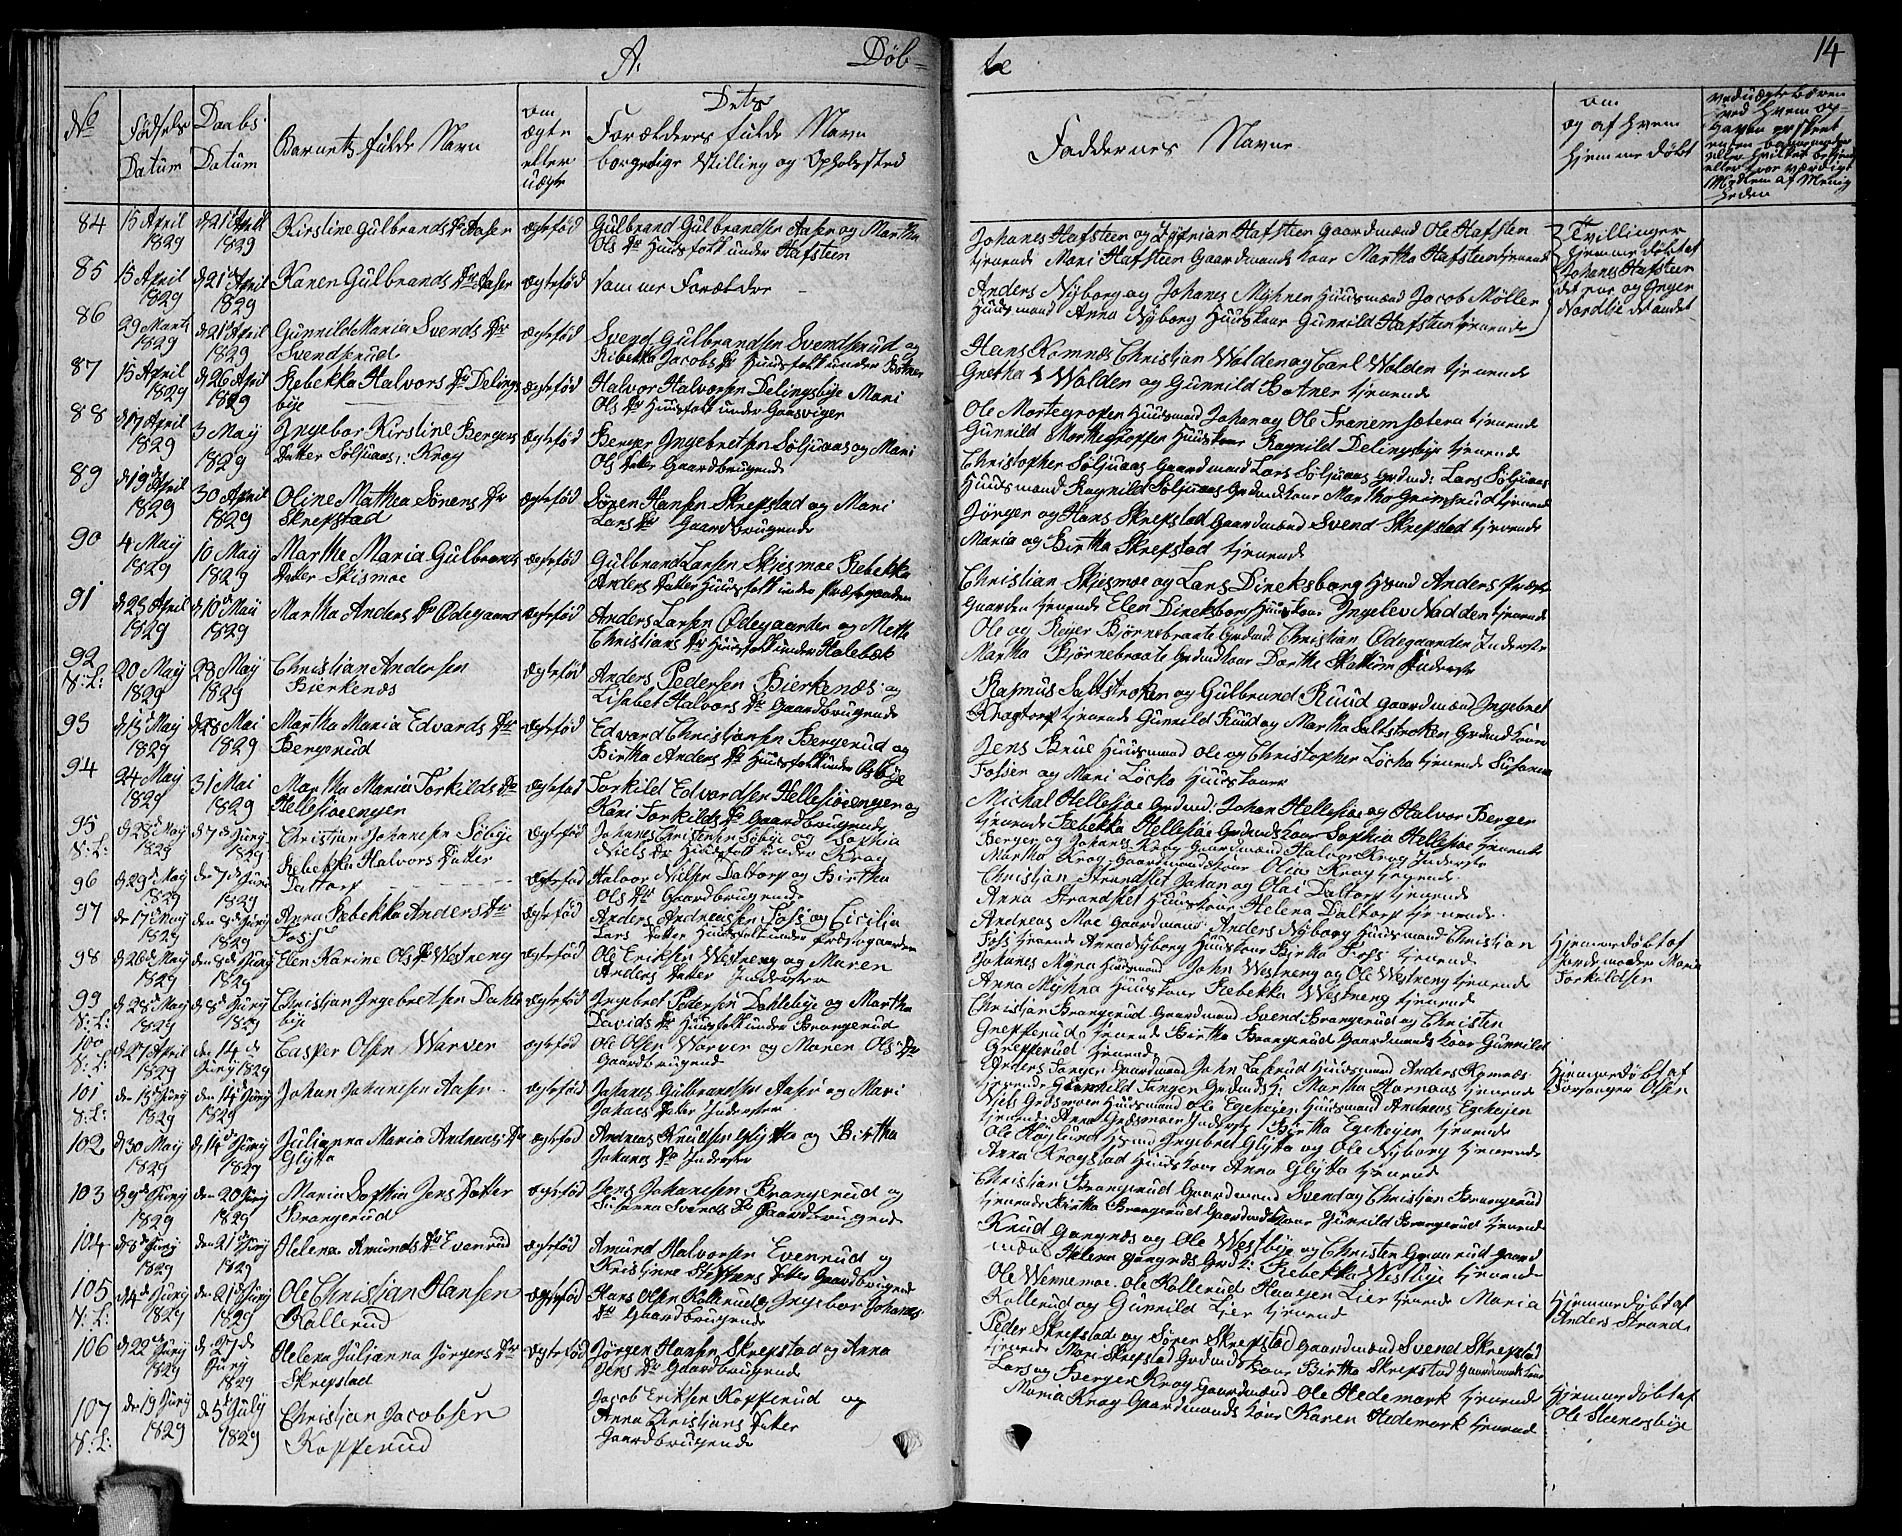 A.
Døb-
te
14
No
Fødsels Datum
Daabs Datum
Barnets fulde Navn
om ægte eller uægte
Dets Forældres fulde Navn
borgerlige Stilling og Opholssted
Faddernes Navne
om og af hvem hjemmedøbt
84 15 April 1829 d 21 April 1829 Kirstine Gulbrands Dr Aaser ægtefød Gulbrand Gulbrandsen Aaser og Martha
Ols Dr Huusfolk under Hafsteen
Johanes Hafsteen og Hafsten Gaardmænd Ole Hafsten
tjenende Mari Hafsteen Gaardmands kone Martha Hafsteen tjenende
Tvillinger
hjemmedøbt af
Johanes Hafsteen
det ene og Inger
Nordbye det andet
85 15 April 1829 d 21 April 1829 Karen Gulbrands Dr Aaser ægtefød samme Forældre
Anders Nyborg og Johanes Myhren Huusmænd Jacob Møller
Huusmand Anna Nyborg Huuskone Gunnild Hafsteen tjenende
86 29 Marts 1829 d 21 April 1829 Gunnild Maria Svends Dr
Svendserud ægtefød Svend Gulbrandsen Svendserud og
Rebekka Jacobs Dr Huusfolk under Botner
Hans Komnæs Christian Wolden og Carl Wolden tjenende
Grethe Wolden og Gunnild Botner tjenende
87 15 April 1829 d 26 April 1829 Rebekka Halvors Dr Delings
bye ægtefød Halvor Halvorsen Delingsbye Mari
Ols Dr Huusfolk under Gaasviger
Ole Mortegropen Huusmand Johan og Ole Tranemsætera tjenende
Gunnild Morthegroppen Huuskone Ragnild Delingsbye tjenende
88 d 17 April 1829 3 May 1829 Ingebor Kirstine Bergers
Datter Søljuaas i Krog ægtefød Berger Ingebretsen Søljuaas og Mari
Ols Datter Gaardbrugende
Christopher Søljuaas Gaardmand Lars Søljuaas Grdmd: Lars Søljuaas
Huusmand Ragnild Søljuaas Grdmdkone Martha Grimsrud tjenende
89 d 19 April 1829 30 April 1829 Oline Mathea Sørens Dr
Skrepstad ægtefød Søren Hansen Skrepstad og Mari
Lars Dr Gaardbrugende
Jørgen og Hans Skrepstad Gaardmænd Svend Skrepstad tjenende
Maria og Birthe Skrepstad tjenende
90 4 May 1829 10 May 1829 Marthe Maria Gulbrands
Datter Skismoe ægtefød Gulbrand Larsen Skjesmoe Rebekka
Anders Datter Huusfolk under Præstegaarden
Christian Skjesmoe og Lars Direksborg Hsmd Anders Præste
gaarden tjenende Elen Direksborg Huuskone Ingelev Nadden tjenende
91 d 25 April 1829 d 10 Maii 1829 Martha Anders Dr Ødegaard ægtefød Anders Larsen Ødegaarden og Mette
Christians Dr Huusfolk under Holebæk
Ole og Reier Bjørnebraate Grdmd: Christian Ødegaarden Inderste
Martha Bjørnebraate Grdmdkone Dorthe Skattum Inderste
92 20 May 1829 28 May 1829 Christian Andersen
Bierkenæs ægtefød Anders Pedersen Bierkenæs og
Lisabet Halvors Dr Gaardbrugende
Rasmus Saltstroken og Gulbrand Ruud Gaardmænd Ingebret
Kragtorp tjenende Gunnild Ruud og Martha Saltstroken Grdmdkoner
93 d 15 May 1829 d 28 Mai 1829 Martha Maria Edvards Dr
Bergerud ægtefød Edvard Christiansen Bergerud og
Birthe Anders Dr Huusfolk under Osbye
Jens Brue Huusmand Ole og Christopher Løcka tjenende Susanne
Fosser og Mari Løcka Huuskoner
94 24 May 1829 31 Mai 1829 Martha Maria Torkilds Dr
Hellesiøengen ægtefød Torkild Edvardsen Hellesiøeengen og
Kari Torkilds Dr Gaardbrugende
Michal Hellesjøe Grdmd: Johan Hellesiøe og Halvor Berger
tjenende Rebekka Hellesiøe Grdmdskone Sophia Hellesiøe tjenende
95 d 28 May 1829 d 7 Juny 1829 Christian Johanesen Søbye ægtefød Johanes Christensen Søbye og Sophia
Niels Dr Huusfolk under Krog
Berger og Johanes Krog Gaardmænd Halvor Krog Inderste
Martha Krog Gaardmandskone Olia Krog tjenende
96 d 29 May 1829 den 7 Juni 1829 Rebekka Halvors Datter
Daltorp ægtefød Halvor Nielsen Daltorp og Birtha
Ols Dr Gaardbrugende
Christian Strandslet Johan og Olai Daltorp tjenende
Anna Strandslet Huuskone Helena Daltorp tjenende
97 den 17 May 1829 den 8 Juny 1829 Anna Rebekka Anders Dr
Foss ægtefød Anders Andreassen Foss og Cicilia
Lars Datter Huusfolk under Prestegaarden
Andreas Moe Gaardmand Anders Nyborg Huusmand Christian
Foss tjenende Anna Nyborg Huuskone Birthe Foss tjenende
98 d 26 May 1829 den 8 Juny 1829 Elen Karine Ols Dr Westreng ægtefød Ole Eriksen Westreng og Maren
Anders Datter Inderster
Johanes Myra Huusmand John Westreng og Ole Westreng tjenende
Anna Myhra Huuskone Rebekka Westreng tjenende
Hjemmedøbt af
Jordemoder Maria
Torkildsen
99 d 28 May 1829 d 8 Juny 1829 Christian Ingebretsen Dahle
bye ægtefød Ingebret Pedersen Dahlebye og Martha
Davids Dr Huusfolk under Brangerud
Christian Brangerud Gaardmand Svend Brangerud og Christen
Grepperud tjenende Birthe Brangerud Gaardmands kone Gunnild
Grepperud tjenende
100 d 27 April 1829 den 14 de Juny 1829 Casper Olsen Warver ægtefød Ole Olsen Warver og Maren Ols Dr
Gaardbrugend
Anders Tangen Gaardmand John Huusmand Anders Komnæs
tjenende Gunnild Tangen Grdmdsk: Martha Hornaas tjenende
Hjemmedøbt af
Forsanger Olsen
101 1829 den 14 Juny 1829 Johan Johanesen Aaser ægtefød Johanes Gulbrandsen Aaser og Mari
Johanes Datter Inderster
Huusmand Ole Egehejen Huusmand Andreas Egehejen
tjenende Anna Inderste Birtha Egehejen tjenende
102 d 30 May 1829 d 14 Juny 1829 Julianna Maria Andreas Dr
Glytta ægtefød Andreas Knudsen Glytta og Birtha
Johanes Dr Inderster
Ole Hsmd Ingebret Glytta og Ole Nyborg tjenende
Anna Krogstad Huuskone Anna Glytta tjenende
103 d 9 Juny 1829 den 20 Juny 1829 Maria Sophia Jens Datter
Brangerud ægtefød Jens Johansen Brangerud og
Susanna Svends Dr Gaardbrugende
Christian Brangerud Gaardmand Svend og Christian Brangerud
tjenende Birtha Brangerud Gaardmdkone Gunnild Brangerud tjenende
104 d 8 Juny 1829 den 21 Juny 1829 Helena Amunds Dr Evenrud ægtefød Amund Halvorsen Evenrud og
Kristjine Steffens Datter Gaardbrugend
Knud Gangnæs og Ole Westbye og Christen Graarud Gaard
mænd Helena Gangnæs Grdk: Rebekka Westbye tjenende
105 d 4 Juny 1829 den 21 Juny 1829 Ole Christian Hansen
Kollerud ægtefød Hans Olsen Kollerud og Ingebor Johanes
Dr Gaardbrugende
Ole Wennemoe Ole Kollerud Haagen Lier tjenende Maria
Kollerud og Gunnild Lier tjenend
Hjemmedøbt af
Anders Strand
106 d 22 Juny 1829 d 27 de Juny 1829 Helena Julianna Jørgens Dr
Skrepstad ægtefød Jørgen Hansen Skrepstad og Anna
Jens Dr Gaardbrugende
Peder Skrepstad og Søren Skrepstad Gaardmænd Svend Skrepstad
tjenende Mari Skrepstad Grdmds kone Birtha Skrepstad Gaardmandskone
107 den 19 Juny 1829 den 5 July 1829 Christian Jacobsen
Kopperud
Jacob Eriksen Kopperud og
Anna Christians Datter
Gaardbrugende
Lars og Berger Krog Gaardmænd Ole Hedemark tjenende
Maria Krog Gaardmands kone Karen Hedemark tjenend
Hjemmedøbt af
Ole Steenersbye